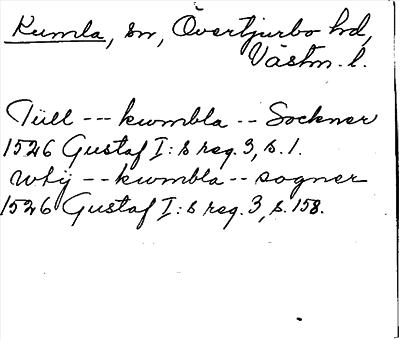 Kumla, sn, Övertjurbo hd,
Västm. l.
Tüll --- kwmbla -- Sockner
1526 Gustaf I:s reg. 3, s. 1.
Wtÿ -- kwmbla -- sogner
1526 Gustaf I:s reg. 3, s. 158.